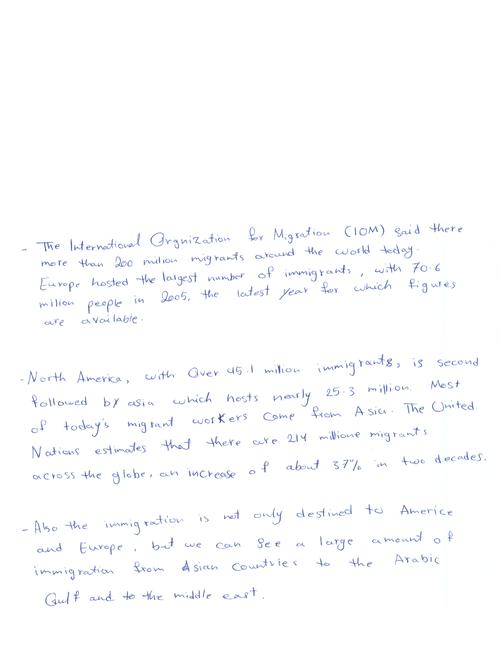 - The International Orgnization for Migration (IOM) said there
more than 200 milion migrants around the world today.
Europe hosted the largest number of immigrants, with 70.6
milion people in 2005, the latest year for which figures
are available.
- North America, with Over 45.1 million immigrants, is second
followed by asia which hosts nearly 25.3 million. Most
of today's migrant workers come from Asia. The United
Nations estimates that there are 214 millione migrants
across the globe, an increase of about 37% in two decades.
- Also the immigration is not only destined to Americe
and Europe, but we can see a large amount of
immigration from Asian Countries to the Arabic
Gulf and to the middle east.